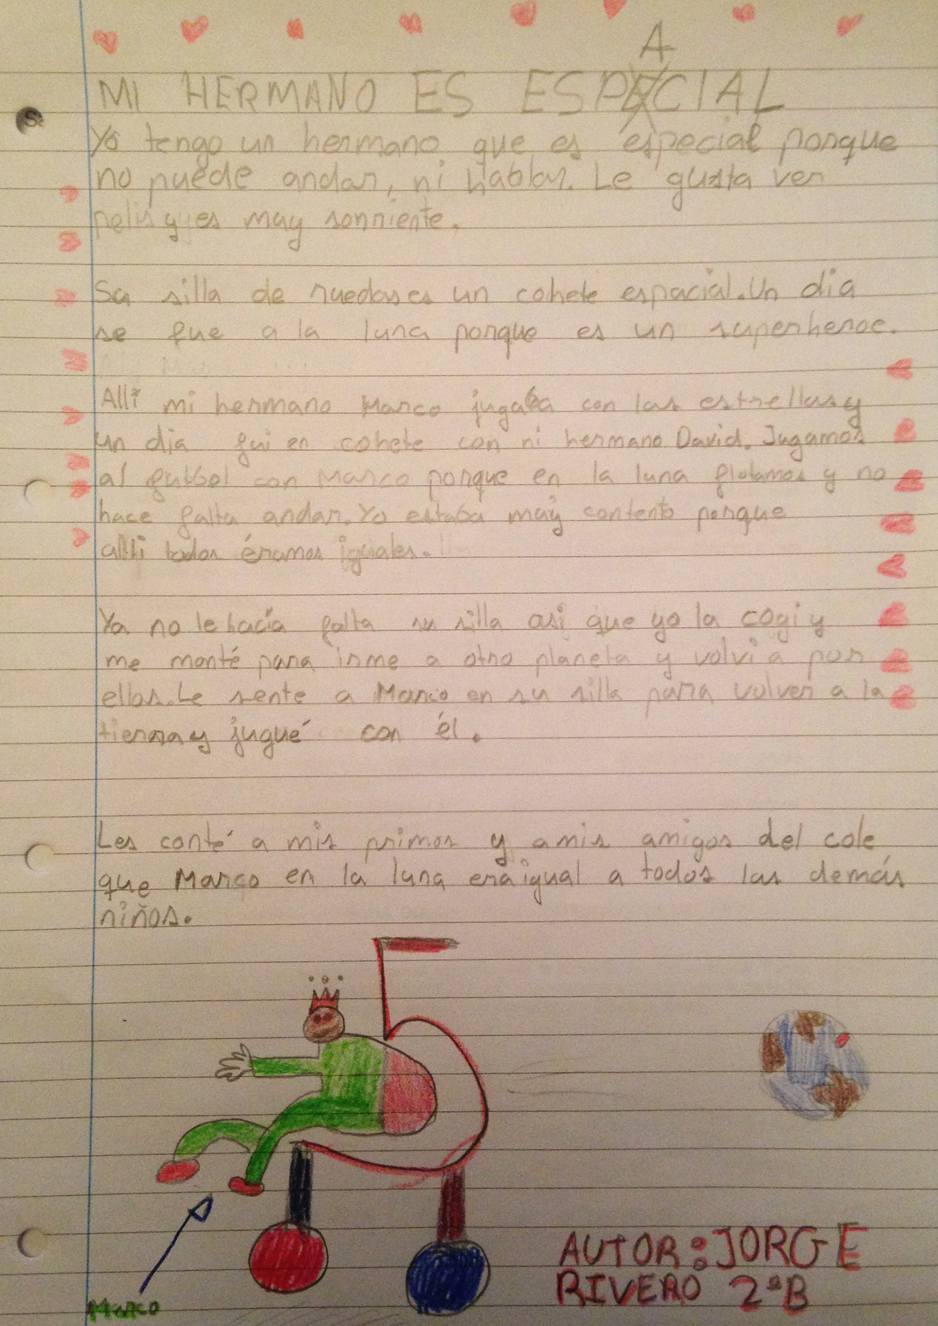 A
MI HERMANO ES ESPECIAL
Yo tengo un hermano que es especial porque
no puede andar, ni hablar. Le gusta ver
pelis y es muy sonriente.
Su silla de ruedas es un cohete espacial. Un dia
se fue a la luna porque es un superheroe.
Allí mi hermano Marco jugaba con las estrellas y
un dia fui en cohete con mi hermano David. Jugamos
al futbol con Marco porque en la luna flotamos y no
hace falta andar. Yo estaba muy contento porque
alli todos éramos iguales.
Ya no le hacía falta su silla asi que yo la cogi y
me monté para irme a otro planeta y volvi a por
ellos. Le sente a Marco en su silla para volver a la
tierra y jugué con él.
Les conté a mis primos y a mis amigos del cole
que Marco en la luna era igual a todos los demás
niños.
Marco
AUTOR: JORGE
RIVERO 2ºB